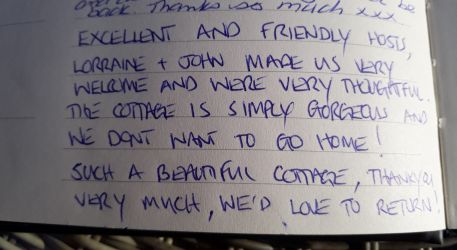 be
back. Thanks so much xxx
EXCELLENT AND FRIENDLY HOSTS,
LORRAINE + JOHN MADE US VERY
WELCOME AND WERE VERY THOUGHTFUL.
THE COTTAGE IS SIMPLY GORGEOUS AND
WE DONT WANT TO GO HOME!
SUCH A BEAUTIFUL COTTAGE, THANKYOU
VERY MUCH, WE'D LOVE TO RETURN!